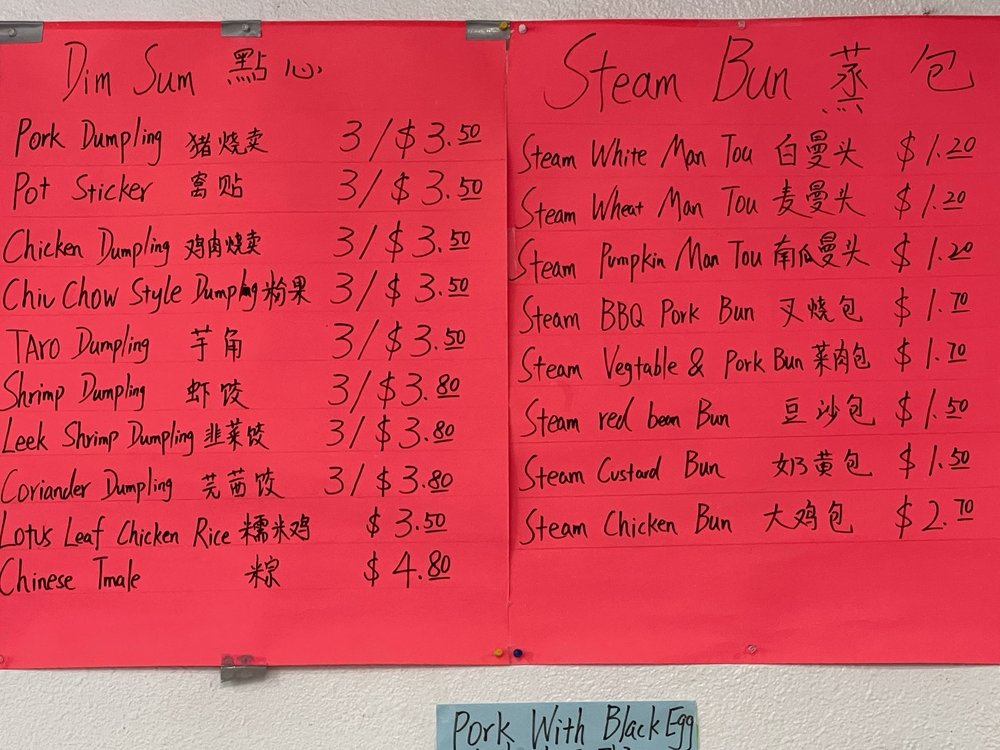 Dim Sum 點心
Pork Dumpling 猪烧卖 3/$3.50
Pot Sticker 窝贴 3/$3.50
Chicken Dumpling 鸡肉烧卖 3/$3.50
Chiu Chow Style Dumplng 粉果 3/$3.50
TAro Dumpling 芋角 3/$3.50
Shrimp Dumpling 虾饺 3/$3.80
Leek Shrimp Dumpling 韭菜饺 3/$3.80
Coriander Dumpling 芫茜饺 3/$3.80
Lotus Leaf Chicken Rice 糯米鸡 $3.50
Chinese Tmale 粽 $4.80
Steam Bun 蒸包
Steam White Man Tou 白曼头 $1.20
Steam Wheat Man Tou 麦曼头 $1.20
Steam Pumpkin Man Tou 南瓜曼头 $1.20
Steam BBQ Pork Bun 叉烧包 $1.70
Steam Vegtable & Pork Bun 菜肉包 $1.70
Steam red bean Bun 豆沙包 $1.50
Steam Custard Bun 奶黄包 $1.50
Steam Chicken Bun 大鸡包 $2.70
Pork With Black Egg